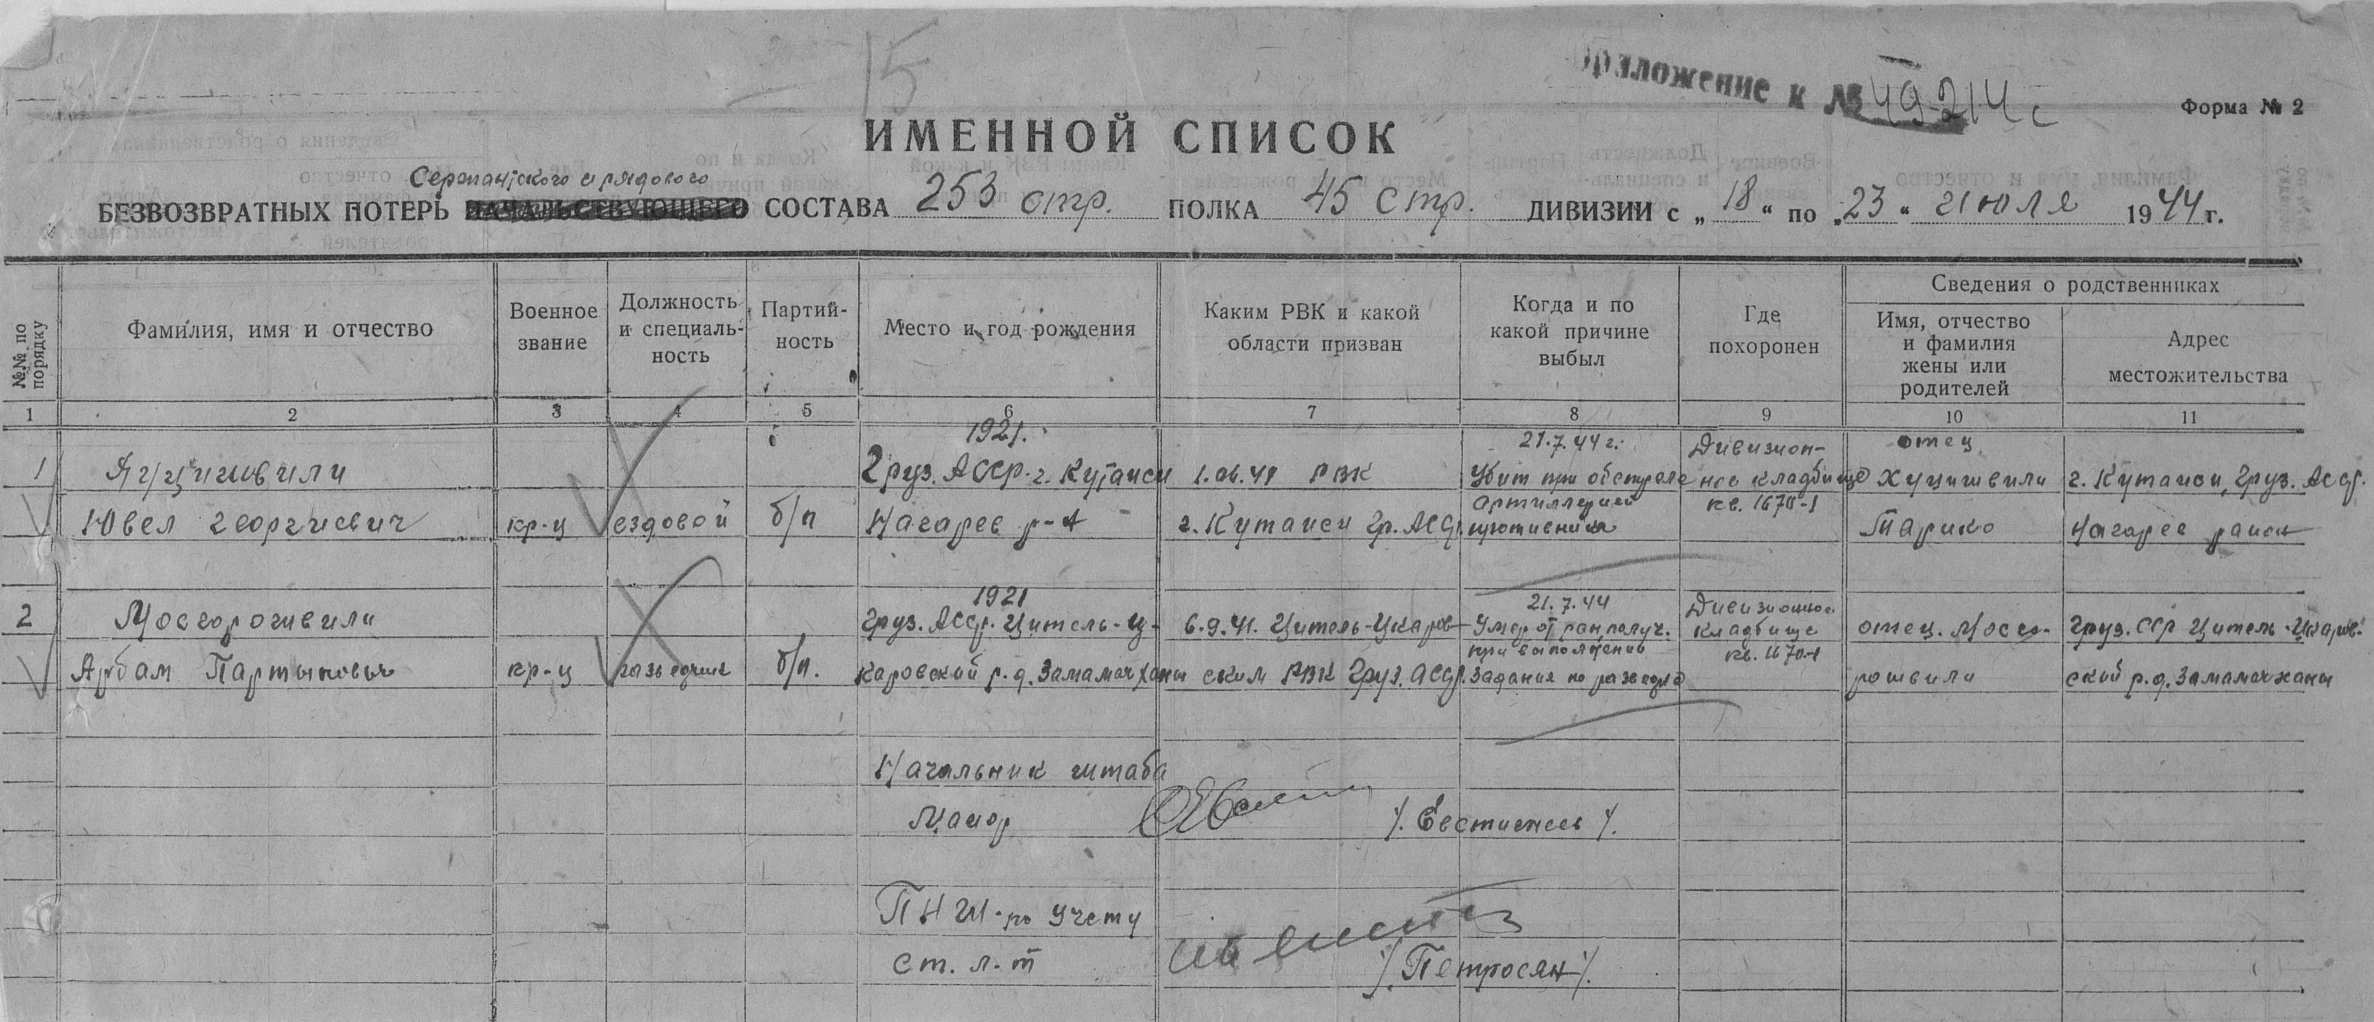 15
Приложение к № 49214 с
Форма № 2
ИМЕННОЙ СПИСОК
Сержантского и рядового
БЕЗВОЗВРАТНЫХ ПОТЕРЬ НАЧАЛЬСТВУЮЩЕГО СОСТАВА 253 стр. ПОЛКА 45 стр. ДИВИЗИИ с „18“ по „23“ июля 1944 г.
№№ по порядку
Фамилия, имя и отчество
Военное звание
Должность и специальность
Партийность
Место и год рождения
Каким РВК и какой области призван
Когда и по какой причине выбыл
Где похоронен
Сведения о родственниках
Имя, отчество и фамилия жены или родителей
Адрес местожительства
1 2 3 4 5 6 7 8 9 10 11
1921. 21.7.44 г. Дивизион- отец
1 Груз. АССР. г. Кутаиси РВК Убит при обстреле ное кладбище Хуцишвили г. Кутаиси, Груз. АССР.
артиллерией кв. 1670-1
Георгиевич кр-ц ездовой б/п г. Кутаиси Гр. АССР. противника
1921 21.7.44 Дивизионное
2 Груз. АССР. Цитель-Ц- 6.9.41. Цитель-Цкаров- Умер от ран получ. кладбище отец. Груз. ССР Цитель-Цкаров-
при выполнении кв. 1670-1
кр-ц разведчик б/п. каровский р. д. Замамачханы ским РВК Груз. АССР. задания по разведке рошвили ский р. д. Замамачханы
Начальник штаба
Майор
ПНШ-по учету
Ст. л-т /Петросян/.